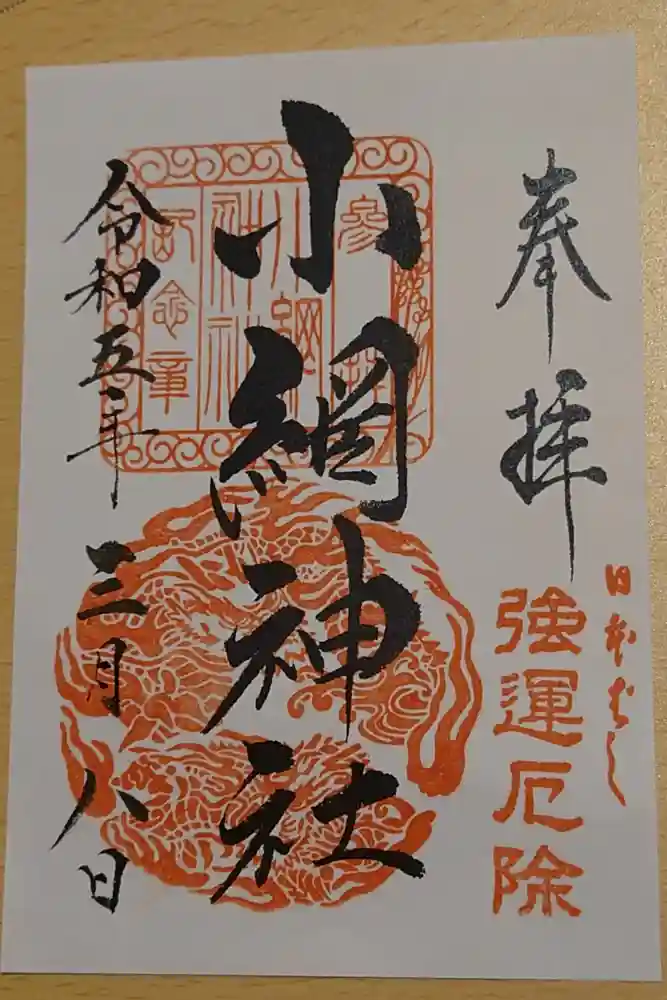 奉拝
日本ばし
強運厄除
小網神社
参拝
小網
神社
記念章
令和五年三月八日